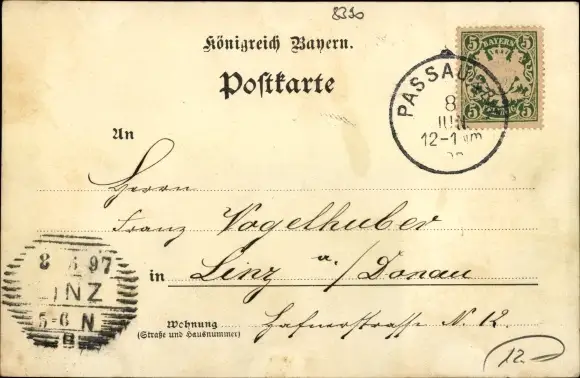 8390
Königreich Bayern.
Postkarte
BAYERN
5 5
5 5
PASSAU
8
JUN
12-1 Nm
An
Herrn
Franz Vogelhuber
in Linz a/Donau
8 6 97
LINZ
5-6 N
8
Wohnung Hafnerstrasse N. 12.
(Straße und Hausnummer)
12.